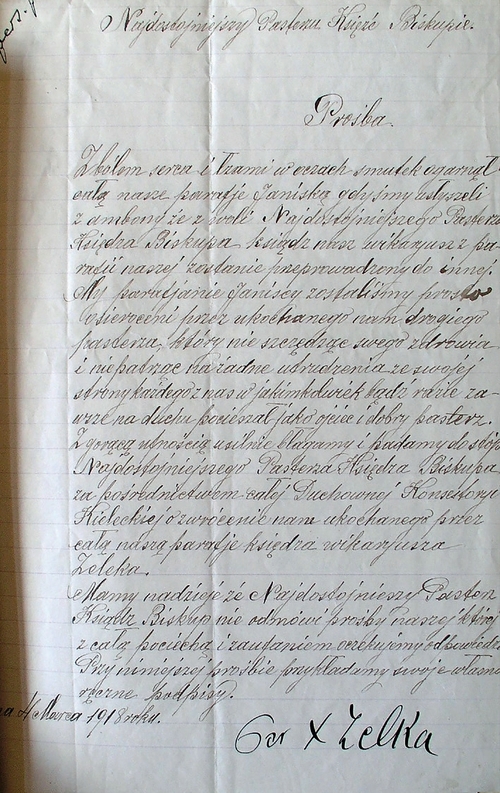 Najdostojniejszy Pasterzu Księże Biskupie.
Prośba.
Z bólem serca i łzami w oczach smutek ogarnął
całą nasze parafję Janiską gdyśmy usłyszeli
z ambony że z woli Najdostojniejszego Pasterza
Księdza Biskupa ksiądz nasz wikarjusz z pa-
rafii naszej zostanie przeprowadzony do innej
My parafjanie Janiscy zostaliśmy prosto
osieroceni przez ukochanego nam drogiego
pasterza, który nie szczędząc swego zdrowia
i niepatrząc na żadne utrudzenia ze swojéj
strony każdego z nas w jakimkolwiek bądź razie za-
wsze na duchu pocieszał jako ojciec i dobry pasterz.
Z gorącą ufnością usilnie błagamy i padamy do stóp
Najdostojniejszego Pasterza Księdza Biskupa
za pośrednictwem całej Duchownej Konsystorz
Kieleckiej o zwrócenie nam ukochanego przez
całą naszą parafje księdza wikarjusza
Zelka.
Mamy nadzieję że Najdostojnieszy Pasterz
Ksiądz Biskup nie odmówi prośby naszej której
z całą pociechą i zaufaniem oczekujemy odpowiedzi
Przy niniejszej prośbie przykładamy swoje własno
ręczne podpisy.
4 Marca 1918 roku.
X Zelka